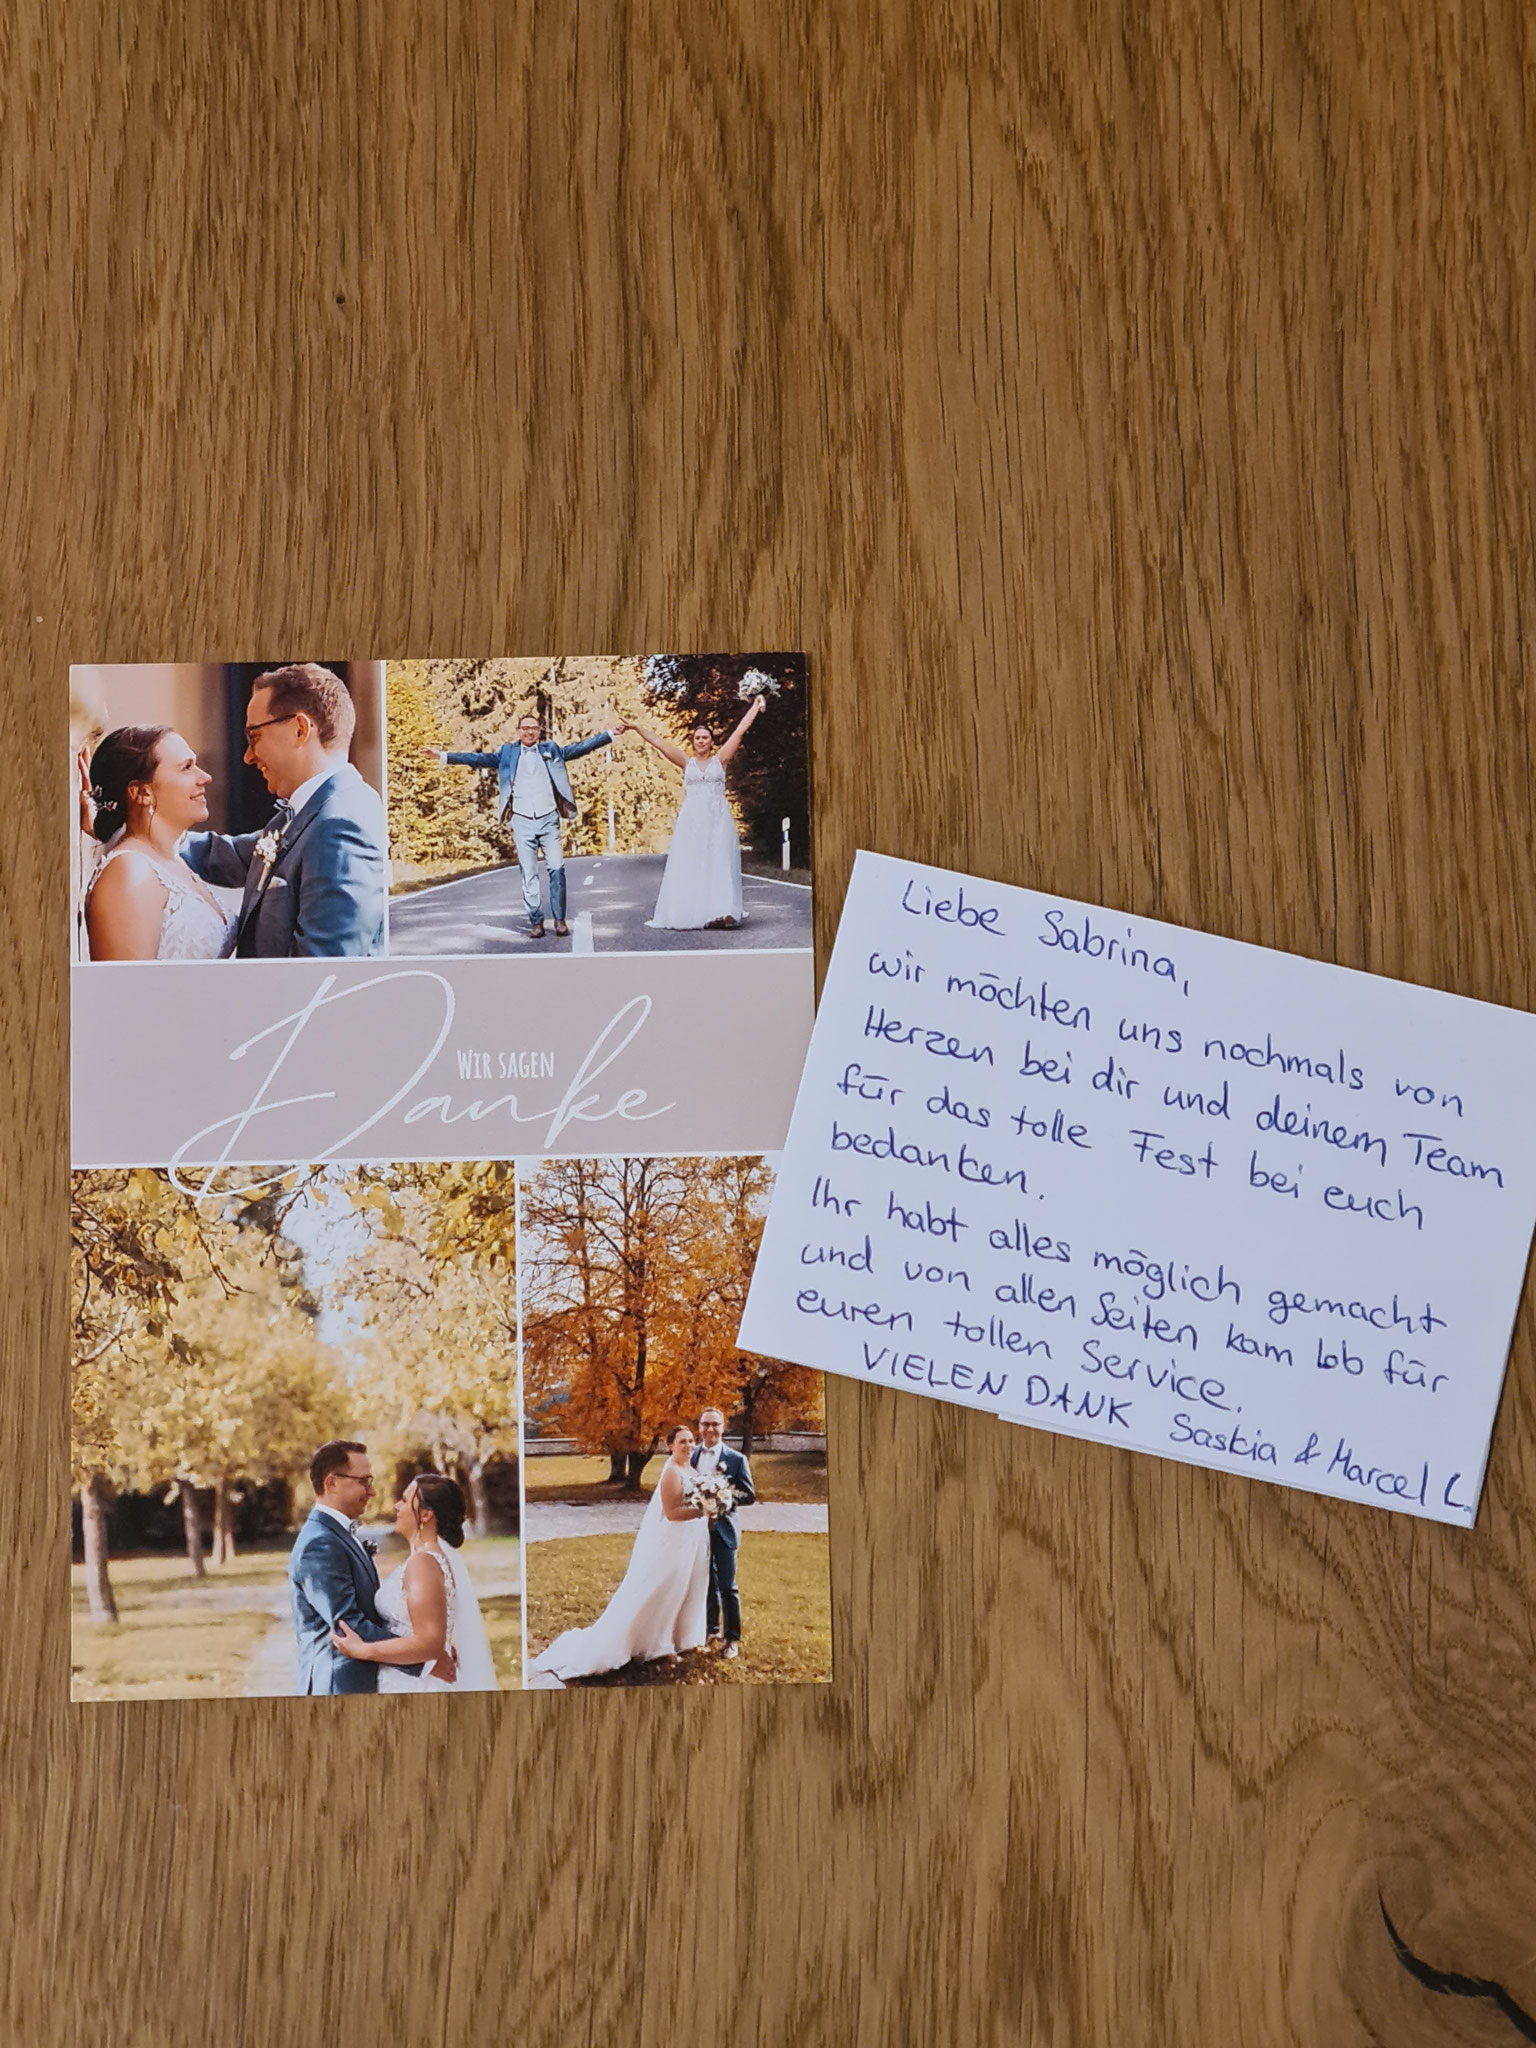 WIR SAGEN
Danke
Liebe Sabrina,
wir möchten uns nochmals von
Herzen bei dir und deinem Team
für das tolle Fest bei euch
bedanken.
Ihr habt alles möglich gemacht
und von allen Seiten kam lob für
euren tollen Service.
VIELEN DANK Saskia & Marcel L.